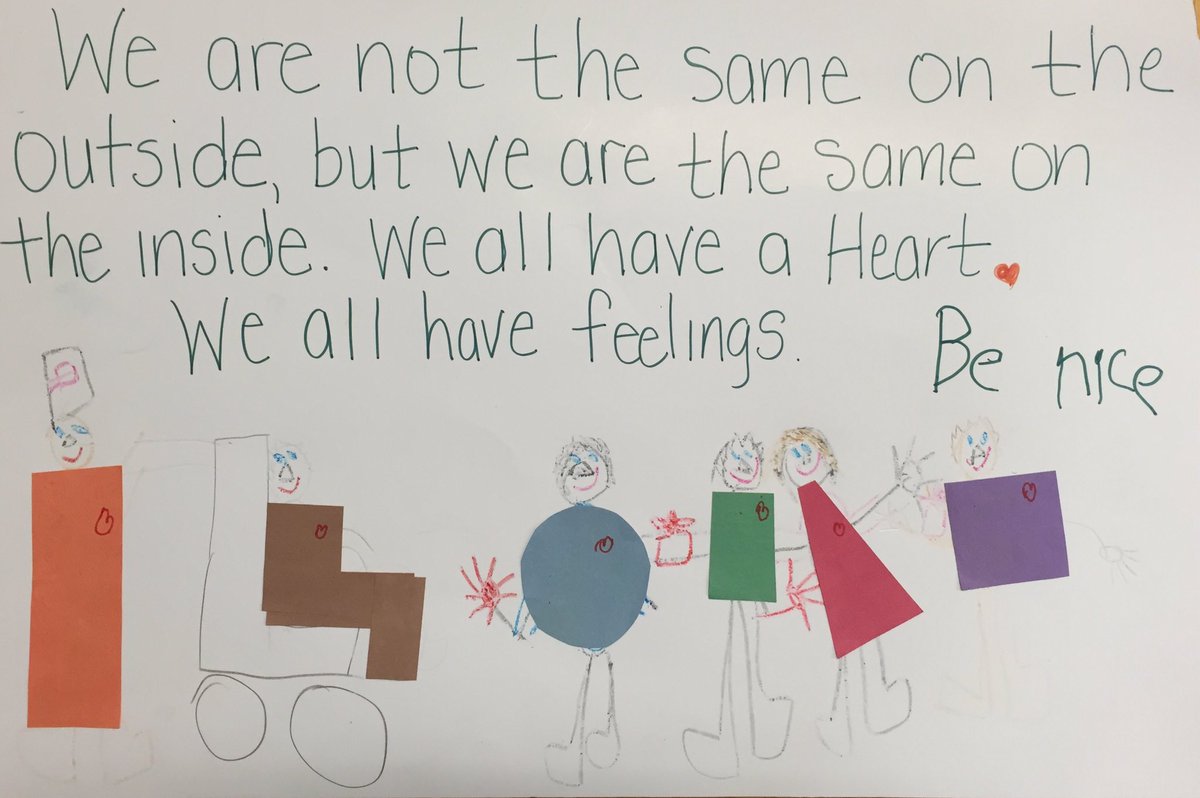 We are not the same on the
outside, but we are the same on
the inside. We all have a Heart.
We all have feelings. Be nice